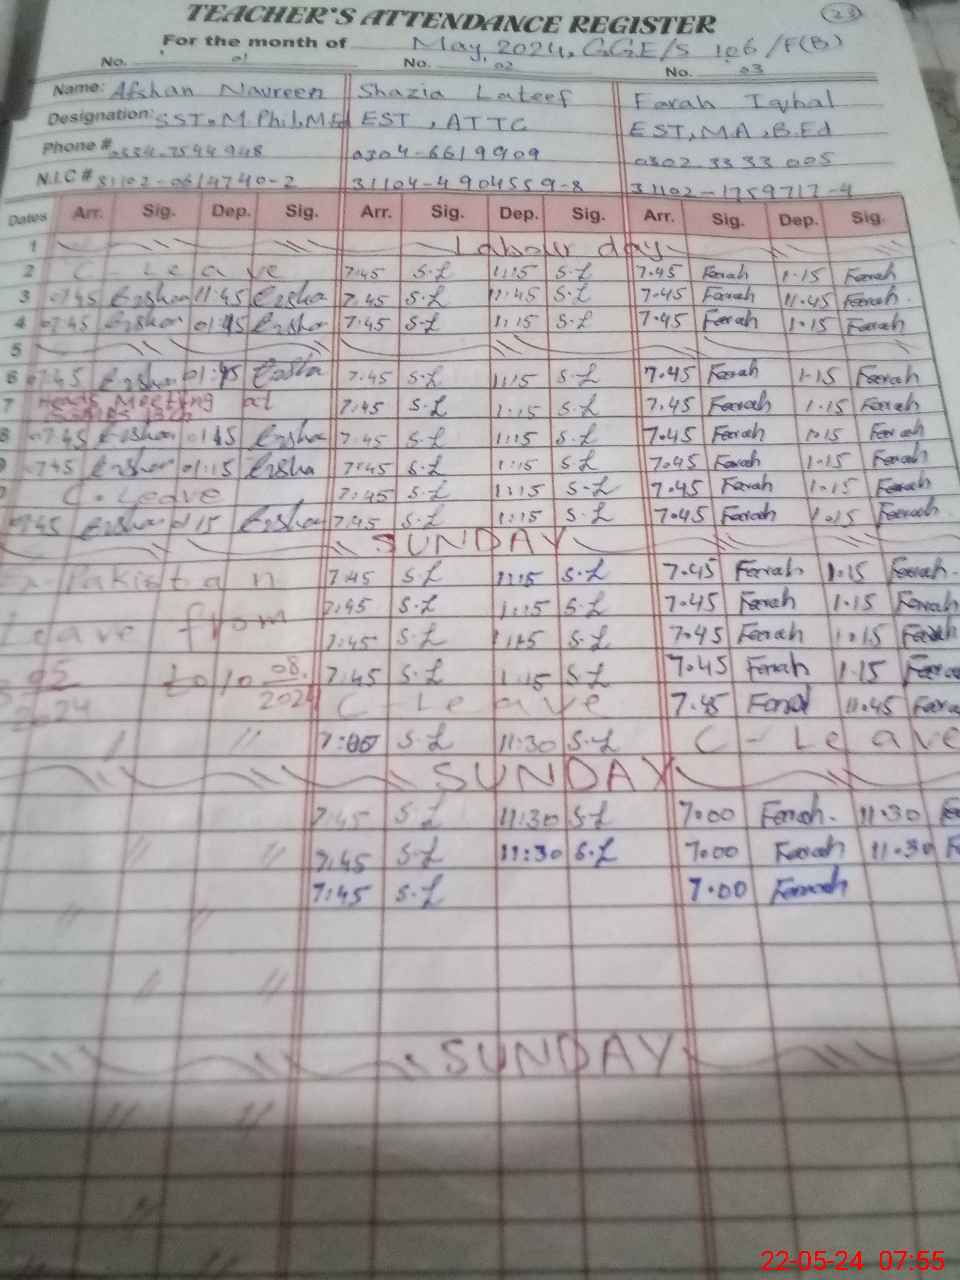 TEACHER'S ATTENDANCE REGISTER
23
For the month of May, 2024, GGE/S 106/F(B)
No. 01 No. 02 No. 03
Name: Afshan Navreen Shazia Lateef Farah Iqbal
Designation: SST, M Phil, M.Ed EST, ATTC EST, M.A, B.Ed
Phone # 0304-6619909 0302 3333 005
N.I.C # 31104-4904559-8 31102-1759717-4
Dates Arr. Sig. Dep. Sig. Arr. Sig. Dep. Sig. Arr. Sig. Dep. Sig.
1 Labour day
2 C-Leave 7:45 S.L 1:15 S.L 7.45 Farah 1.15 Farah
3 07:45 11:45 7:45 S.L 11:45 S.L 7.45 Farah 11.45 Farah
4 07:45 7:45 S.L 1:15 S.L 7.45 Farah 1.15 Farah
5
6 07:45 7:45 S.L 1:15 S.L 7.45 Farah 1.15 Farah
7 Heads Meeting at 7:45 S.L 1:15 S.L 7.45 Farah 1.15 Farah
8 07:45 7:45 S.L 1:15 S.L 7.45 Farah 1.15 Farah
07:45 01:15 7:45 S.L 1:15 S.L 7.45 Farah 1.15 Farah
C-Leave 7:45 S.L 1:15 S.L 7.45 Farah 1.15 Farah
07:45 01:15 7:45 S.L 1:15 S.L 7.45 Farah 1.15 Farah
SUNDAY
Ex Pakistan 7:45 S.L 1:15 S.L 7.45 Farah 1.15 Farah
7:45 S.L 1:15 S.L 7.45 Farah 1.15 Farah
Leave from 7:45 S.L 1:15 S.L 7.45 Farah 1.15 Farah
05 to 10 08 7:45 S.L 1:15 S.L 7.45 Farah 1.15 Farah
2024 2024 C-Leave 7.45 Farah 11.45 Farah
S.L 11:30 S.L C-Leave
SUNDAY
7:45 S.L 11:30 S.L 7.00 Farah 11.30
7:45 S.L 11:30 S.L 7.00 Farah 11.30
7:45 S.L 7.00 Farah
SUNDAY
22-05-24 07:55